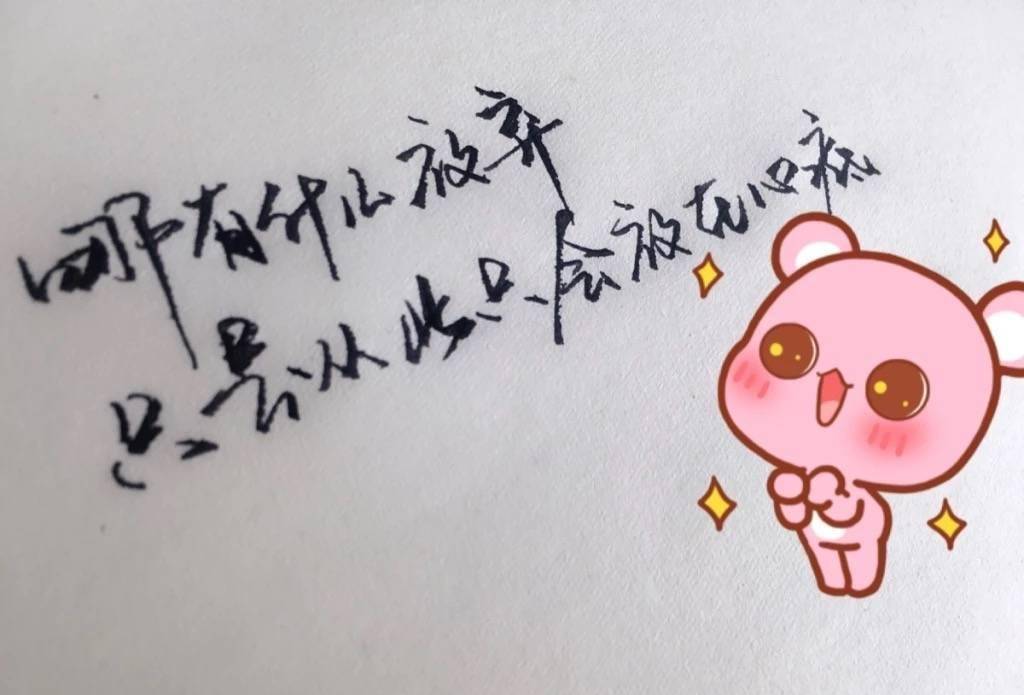 哪有什么放弃
只是从此只会放在心底